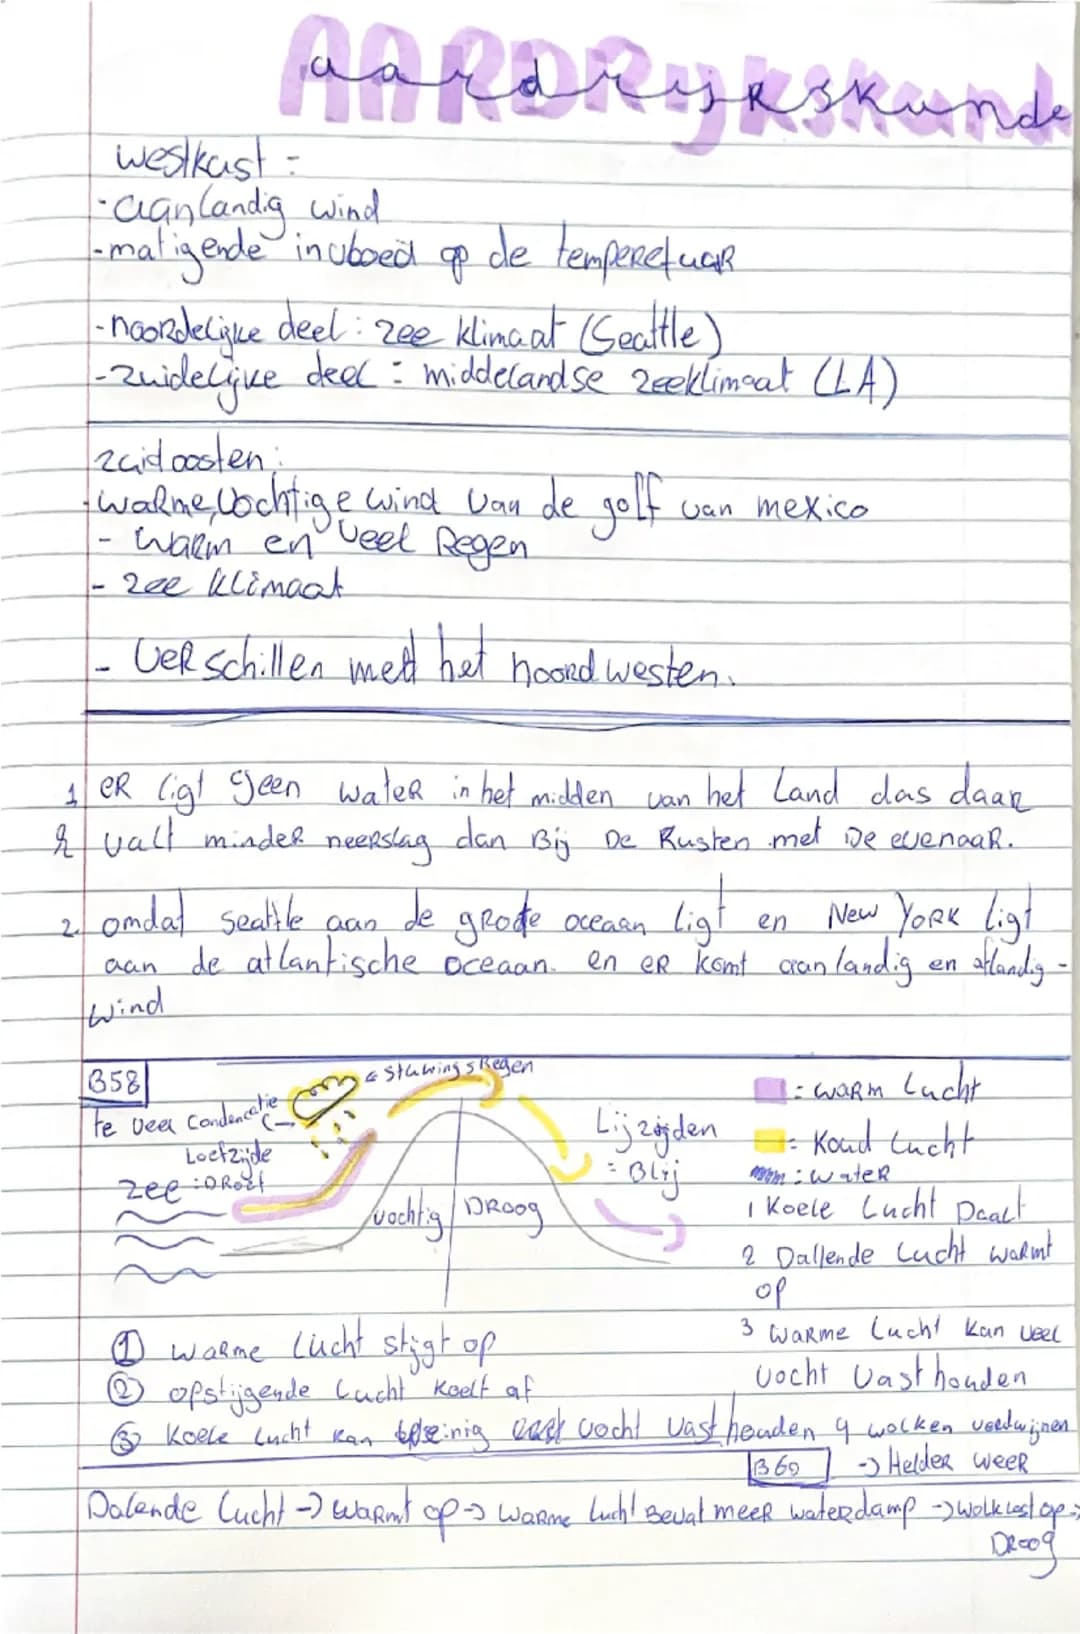 AARDRijkskunde
aardrijkskunde
westkust =
- aanlandig wind
- matigende invloed op de temperetuaR
- nooRdelijke deel : zee klimaat (Seattle)
- zuidelijke deel : middelandse zeeklimaat (LA)
zuidoosten :
- waRme, vochtige wind van de golf van mexico
- waRm en veel Regen
- zee klimaat
- VeRschillen met het nooRdwesten.
1 eR ligt geen wateR in het midden van het Land dus daaR
valt mindeR neeRslag dan Bij De Kusten met De evenaaR.
2 omdat Seattle aan de gRote oceaan ligt en New YoRK ligt
aan de atlantische oceaan. en eR komt aanlandig en aflandig -
wind
B58
te veel Condencatie
← StuwingsRegen
Loefzijde
zee : DRoef
vochtig
DRoog
Lijzijden
= Blij
= waRm Lucht
= Koud Lucht
: wateR
1 Koele Lucht Daalt
2 Dallende Lucht waRmt
op
3 waRme Lucht Kan veel
vocht Vasthouden
① waRme Lucht stijgt op
② opstijgende Lucht Koelt af
③ Koele Lucht Kan weinig vocht Vasthouden
4 wolken verdwijnen
-> HeldeR weeR
B60
Dalende Lucht -> waRmt op -> waRme Lucht Bevat meeR wateRdamp -> wolk lost op ->
DRoog